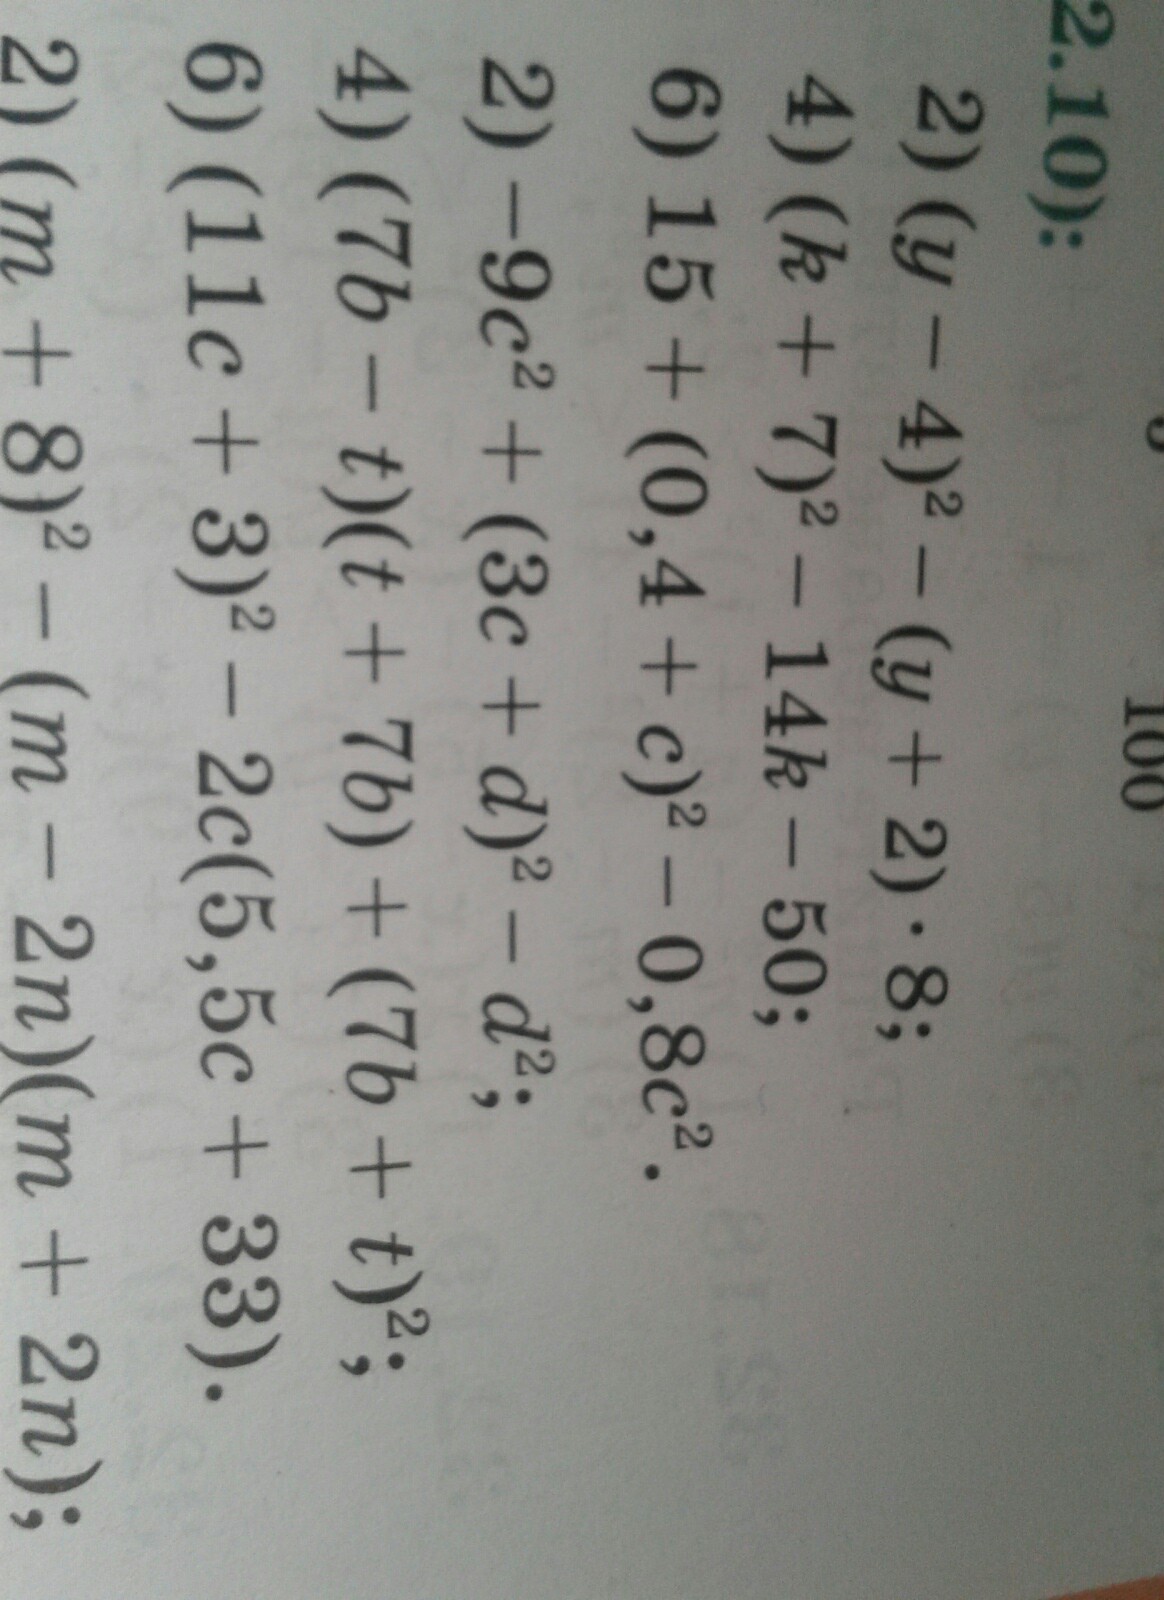 100
2.10):
2) (y − 4)² − (y + 2) · 8;
4) (k + 7)² − 14k − 50;
6) 15 + (0,4 + c)² − 0,8c².
2) −9c² + (3c + d)² − d²;
4) (7b − t)(t + 7b) + (7b + t)²;
6) (11c + 3)² − 2c(5,5c + 33).
2) (m + 8)² − (m − 2n)(m + 2n);